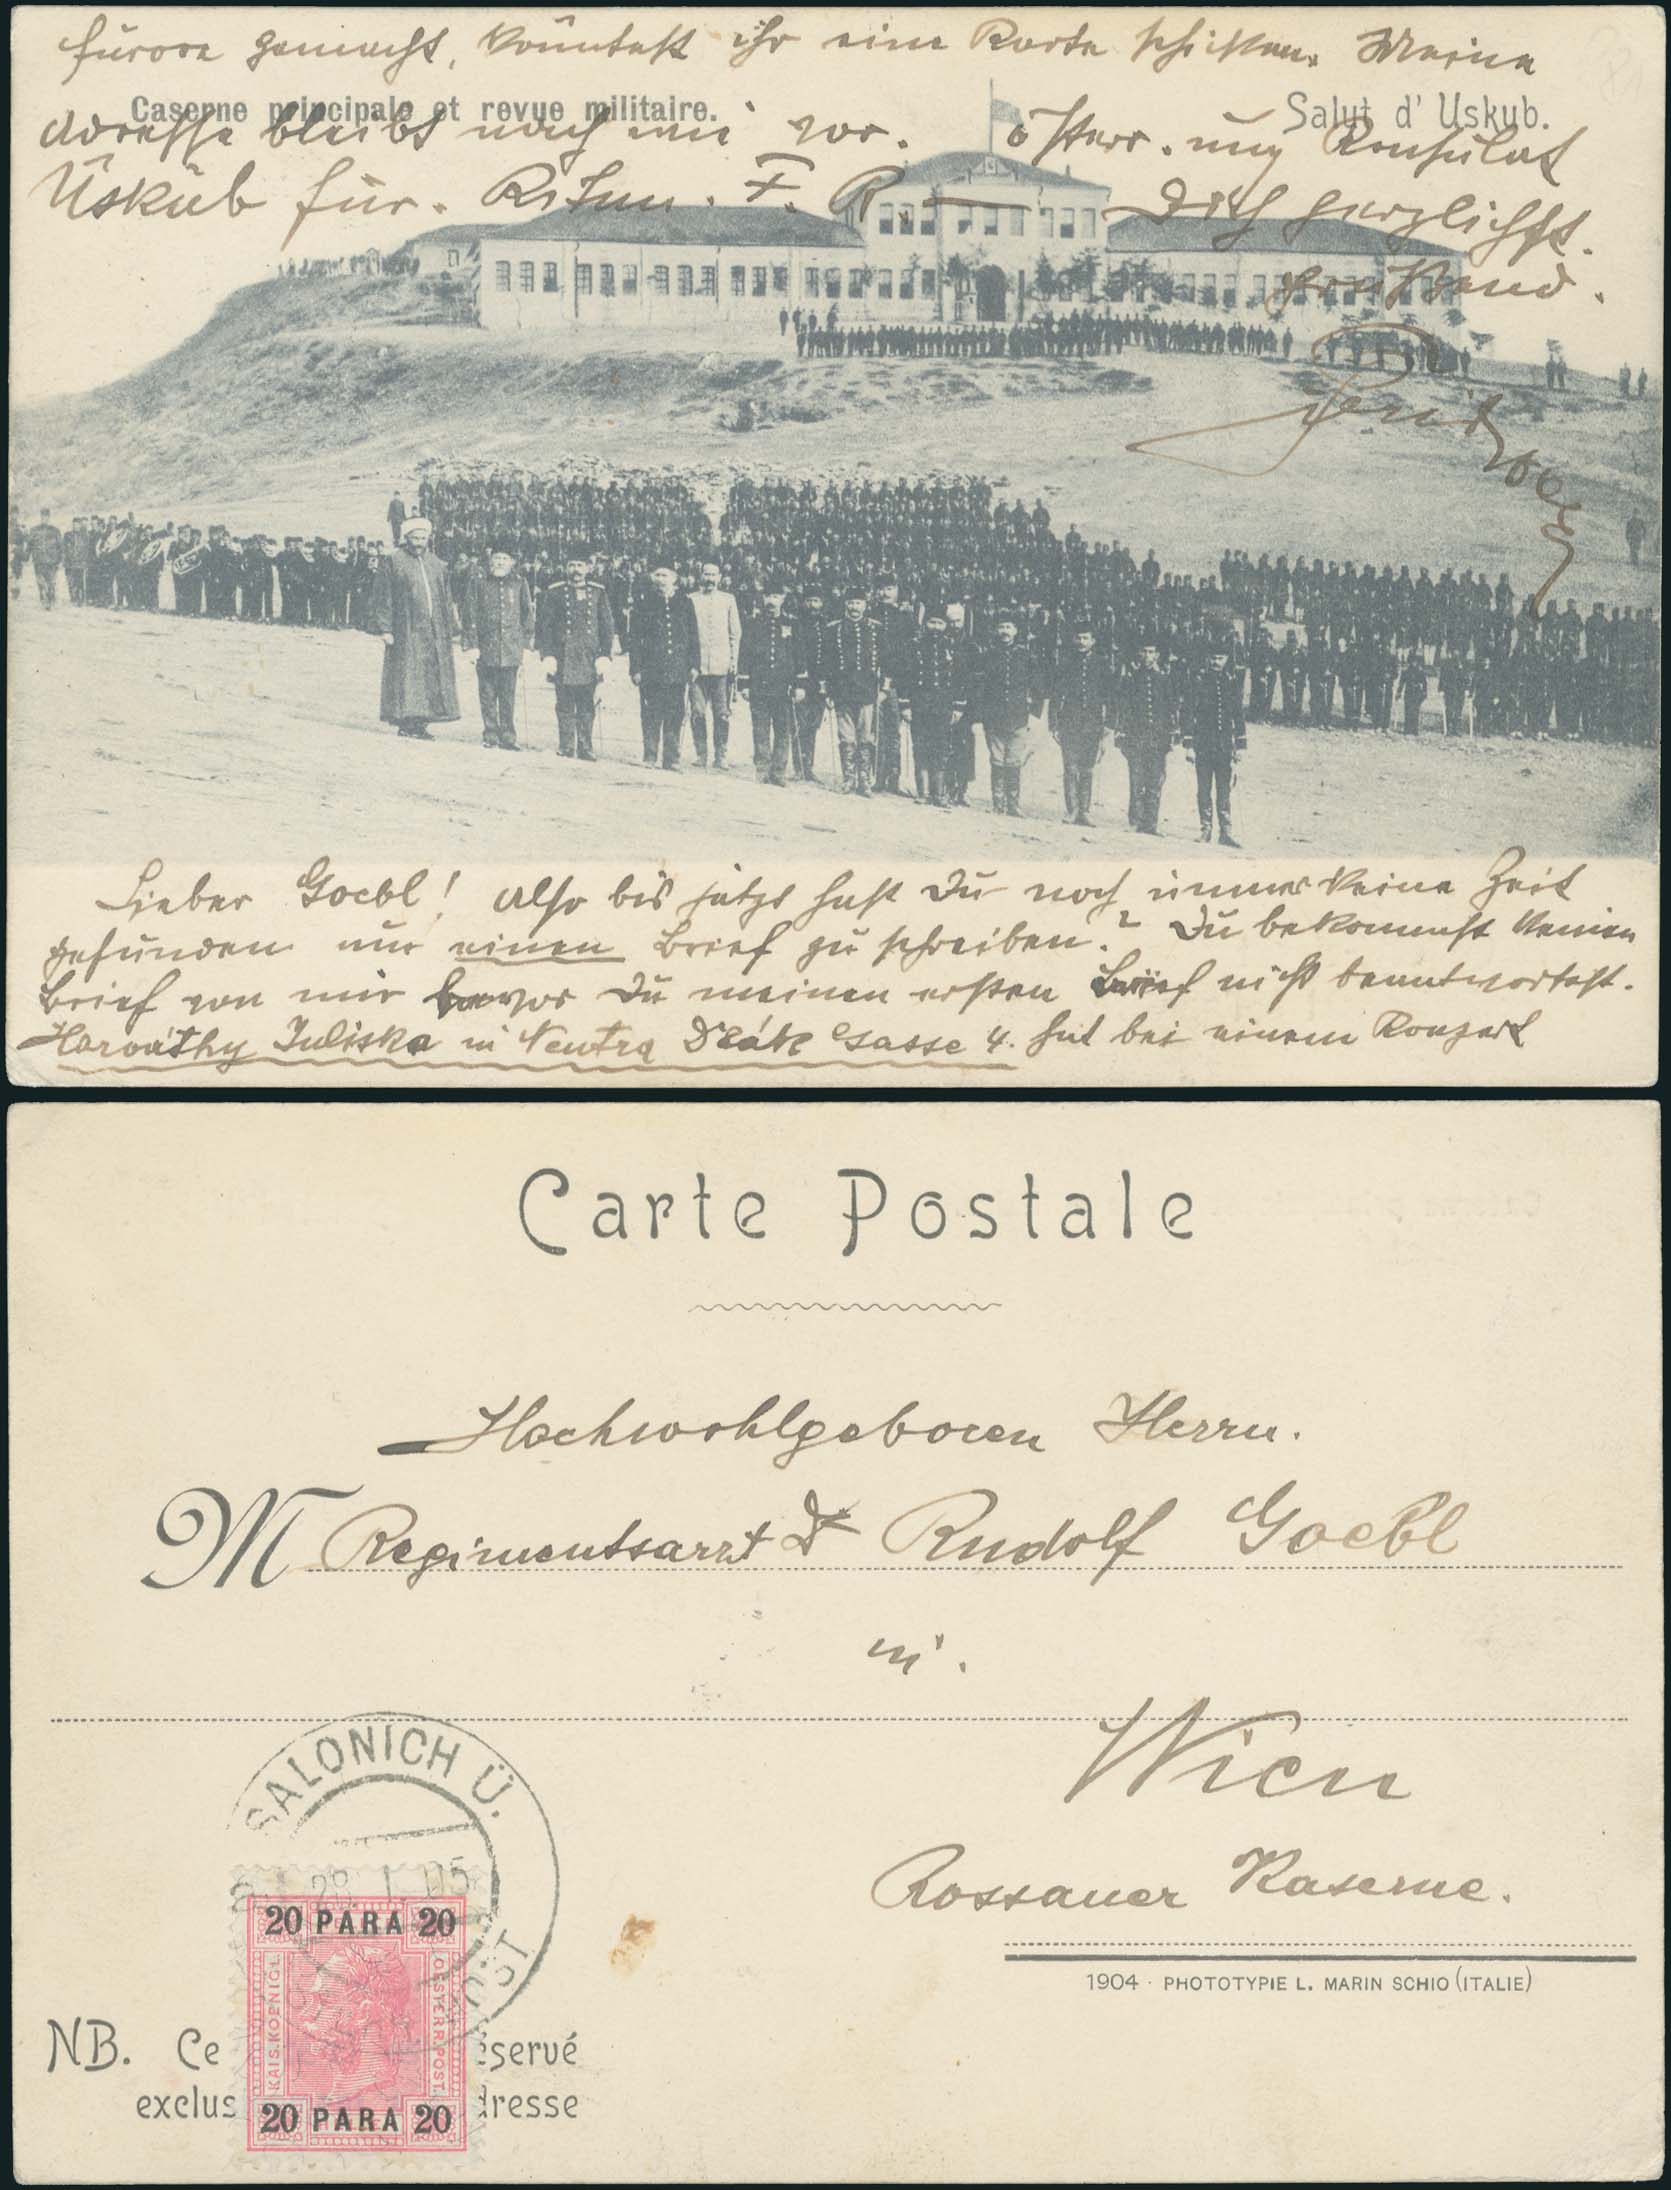 furore gemacht, könntest ihr eine Karte schicken. Meine
Caserne principale et revue militaire.
Salut d' Uskub.
Adresse bleibt nach wie vor. österr. ung Konsulat
Üsküb für. Rittm. F. R. Dich herzlichst.
grüßend.
Lieber Goebl! Also bis jetzt hast Du noch immer keine Zeit
gefunden nur einen Brief zu schreiben? Du bekommst keinen
Brief von mir bevor Du meinen ersten Brief nicht beantwortest.
Horváthy Juliska in Neutra Deák Gasse 4. hat bei einem Konzert
Carte Postale
Hochwohlgeboren Herrn.
M Regimentsarzt Dr Rudolf Goebl
in.
Wien
Rossauer Kaserne.
1904 · PHOTOTYPIE L. MARIN SCHIO (ITALIE)
SALONICH Ü.
28 I 05
POST
20 PARA 20
KAIS. KOENIGL.
OESTERR. POST.
20 PARA 20
NB. Ce servé
exclus dresse